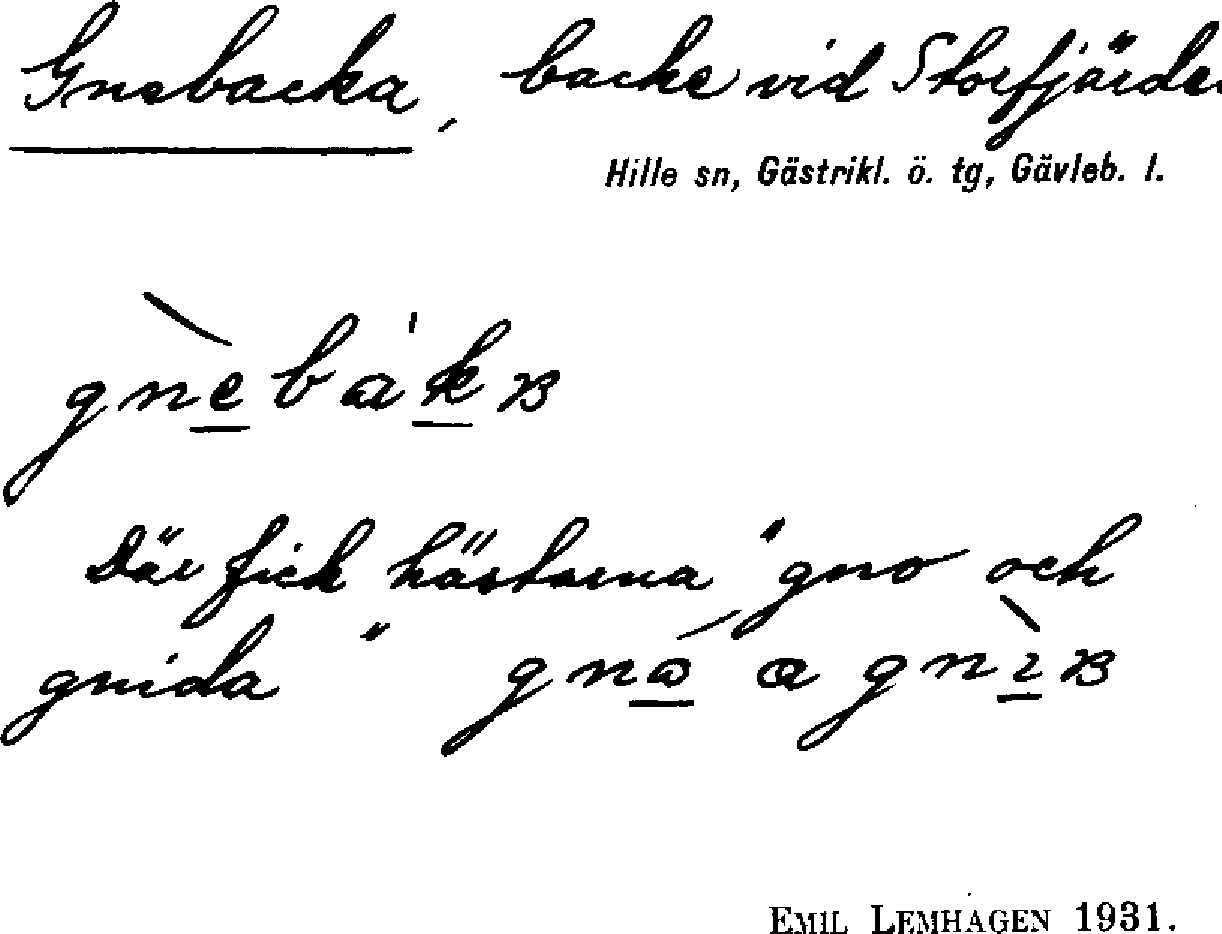 Gnebacka, backe vid Storfjärde
Hille sn, Gästrikl. ö. tg, Gävleb. l.
gnèbákʙ
Där fick hästarna "gno och
gnida" gnó a gnìʙ
EMIL LEMHAGEN 1931.